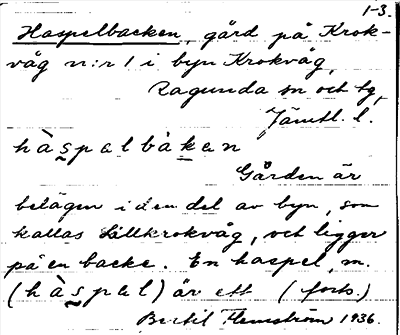 1-3.
Haspelbacken, gård på Krok-
våg n:r 1 i byn Krokvåg,
Ragunda sn och tg,
Jämtl. l.
hàspelbàken
Gården är
belägen i den del av byn, som
kallas Lillkrokvåg, och ligger
på en backe. En haspel, m.
(hàspel) är ett (forts.)
Bertil Flemström 1936.